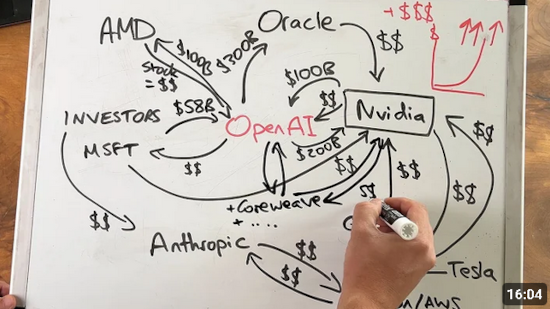 + $$$
AMD
Oracle
$$
$
$100B
$300B
stock
= $$
$100B
$$
INVESTORS
$58B
OpenAI
Nvidia
MSFT
$$
$200B
$$
$$
$$
$$
$$
+ Coreweave
+ ....
$$
$$
Anthropic
$$
$$
Tesla
/AWS
16:04